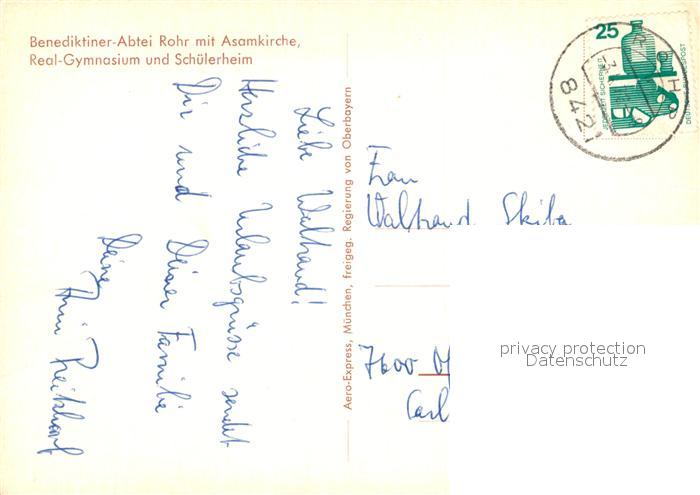 Benediktiner-Abtei Rohr mit Asamkirche,
Real-Gymnasium und Schülerheim
Liebe Waltraud!
Herzliche Urlaubsgrüsse sendet
Dir und Deiner Familie
Deine
Aero-Express, München, freigeg. Regierung von Oberbayern
25
JEDERZEIT SICHERHEIT
DEUTSCHE BUNDESPOST
ROHR
8421
Frau
Waltraud Skiba
7600
Carl
privacy protection
Datenschutz